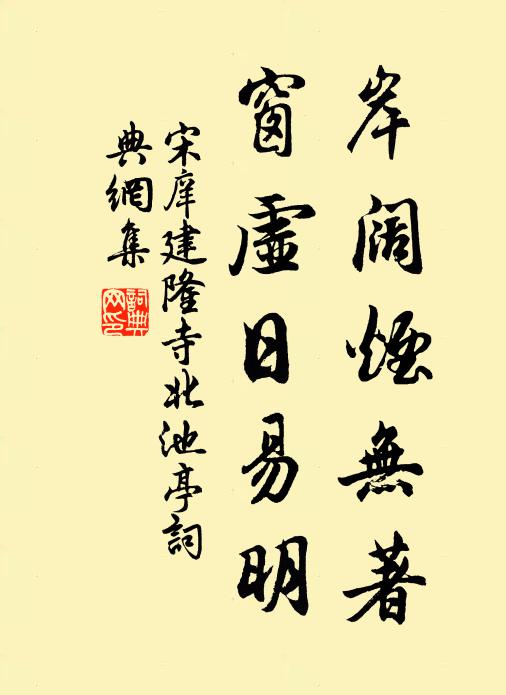 岸阔煙無著
窗虛日易明
宋庠建隆寺北池亭詞
典網集
詞典
网印